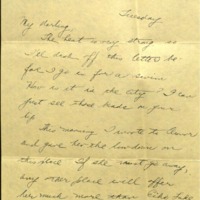 Tuesday
My Darling,
The heat is very strong so
I'll dash off this letter be-
fore I go in for a swim.
How is it in the city? I can
just see those beads on your
lip
This morning I wrote to
and gave her the lowdown on
this place. If she must go away,
any other place will offer
her much more than Lake